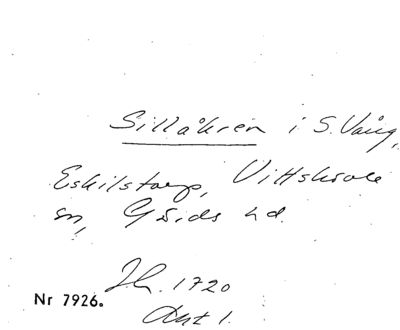 Sillåkren i S. Vång,
Eskilstorp, Vittskövle
sn, Gärds hd.
Jb. 1720
Nr 7926.
Akt 1.